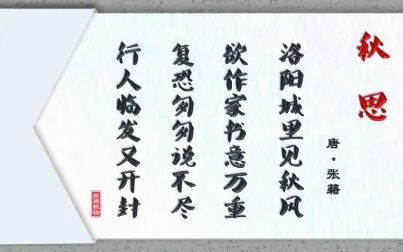 秋思
唐·张籍
洛阳城里见秋风
欲作家书意万重
复恐匆匆说不尽
行人临发又开封